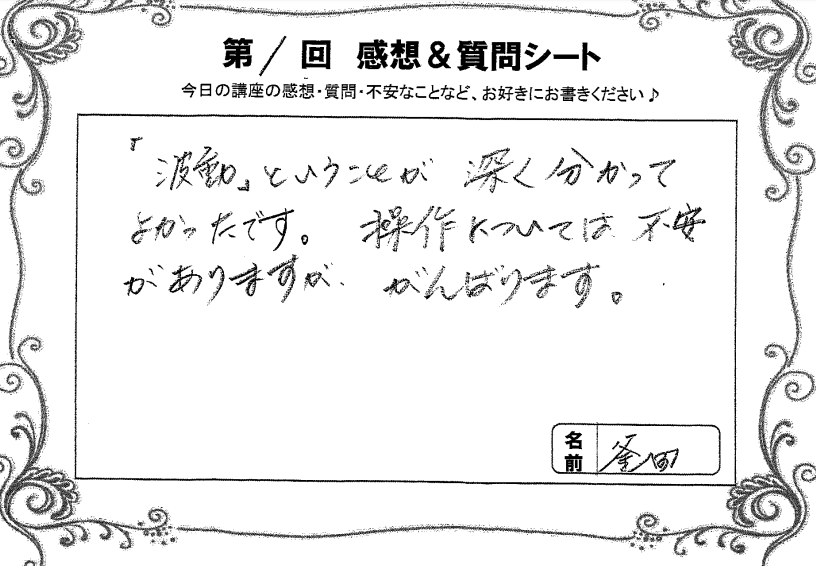 第1回 感想&質問シート
今日の講座の感想・質問・不安なことなど、お好きにお書きください♪
「波動」ということが 深く分かって
よかったです。 操作については 不安
がありますが、がんばります。
名前 釜田